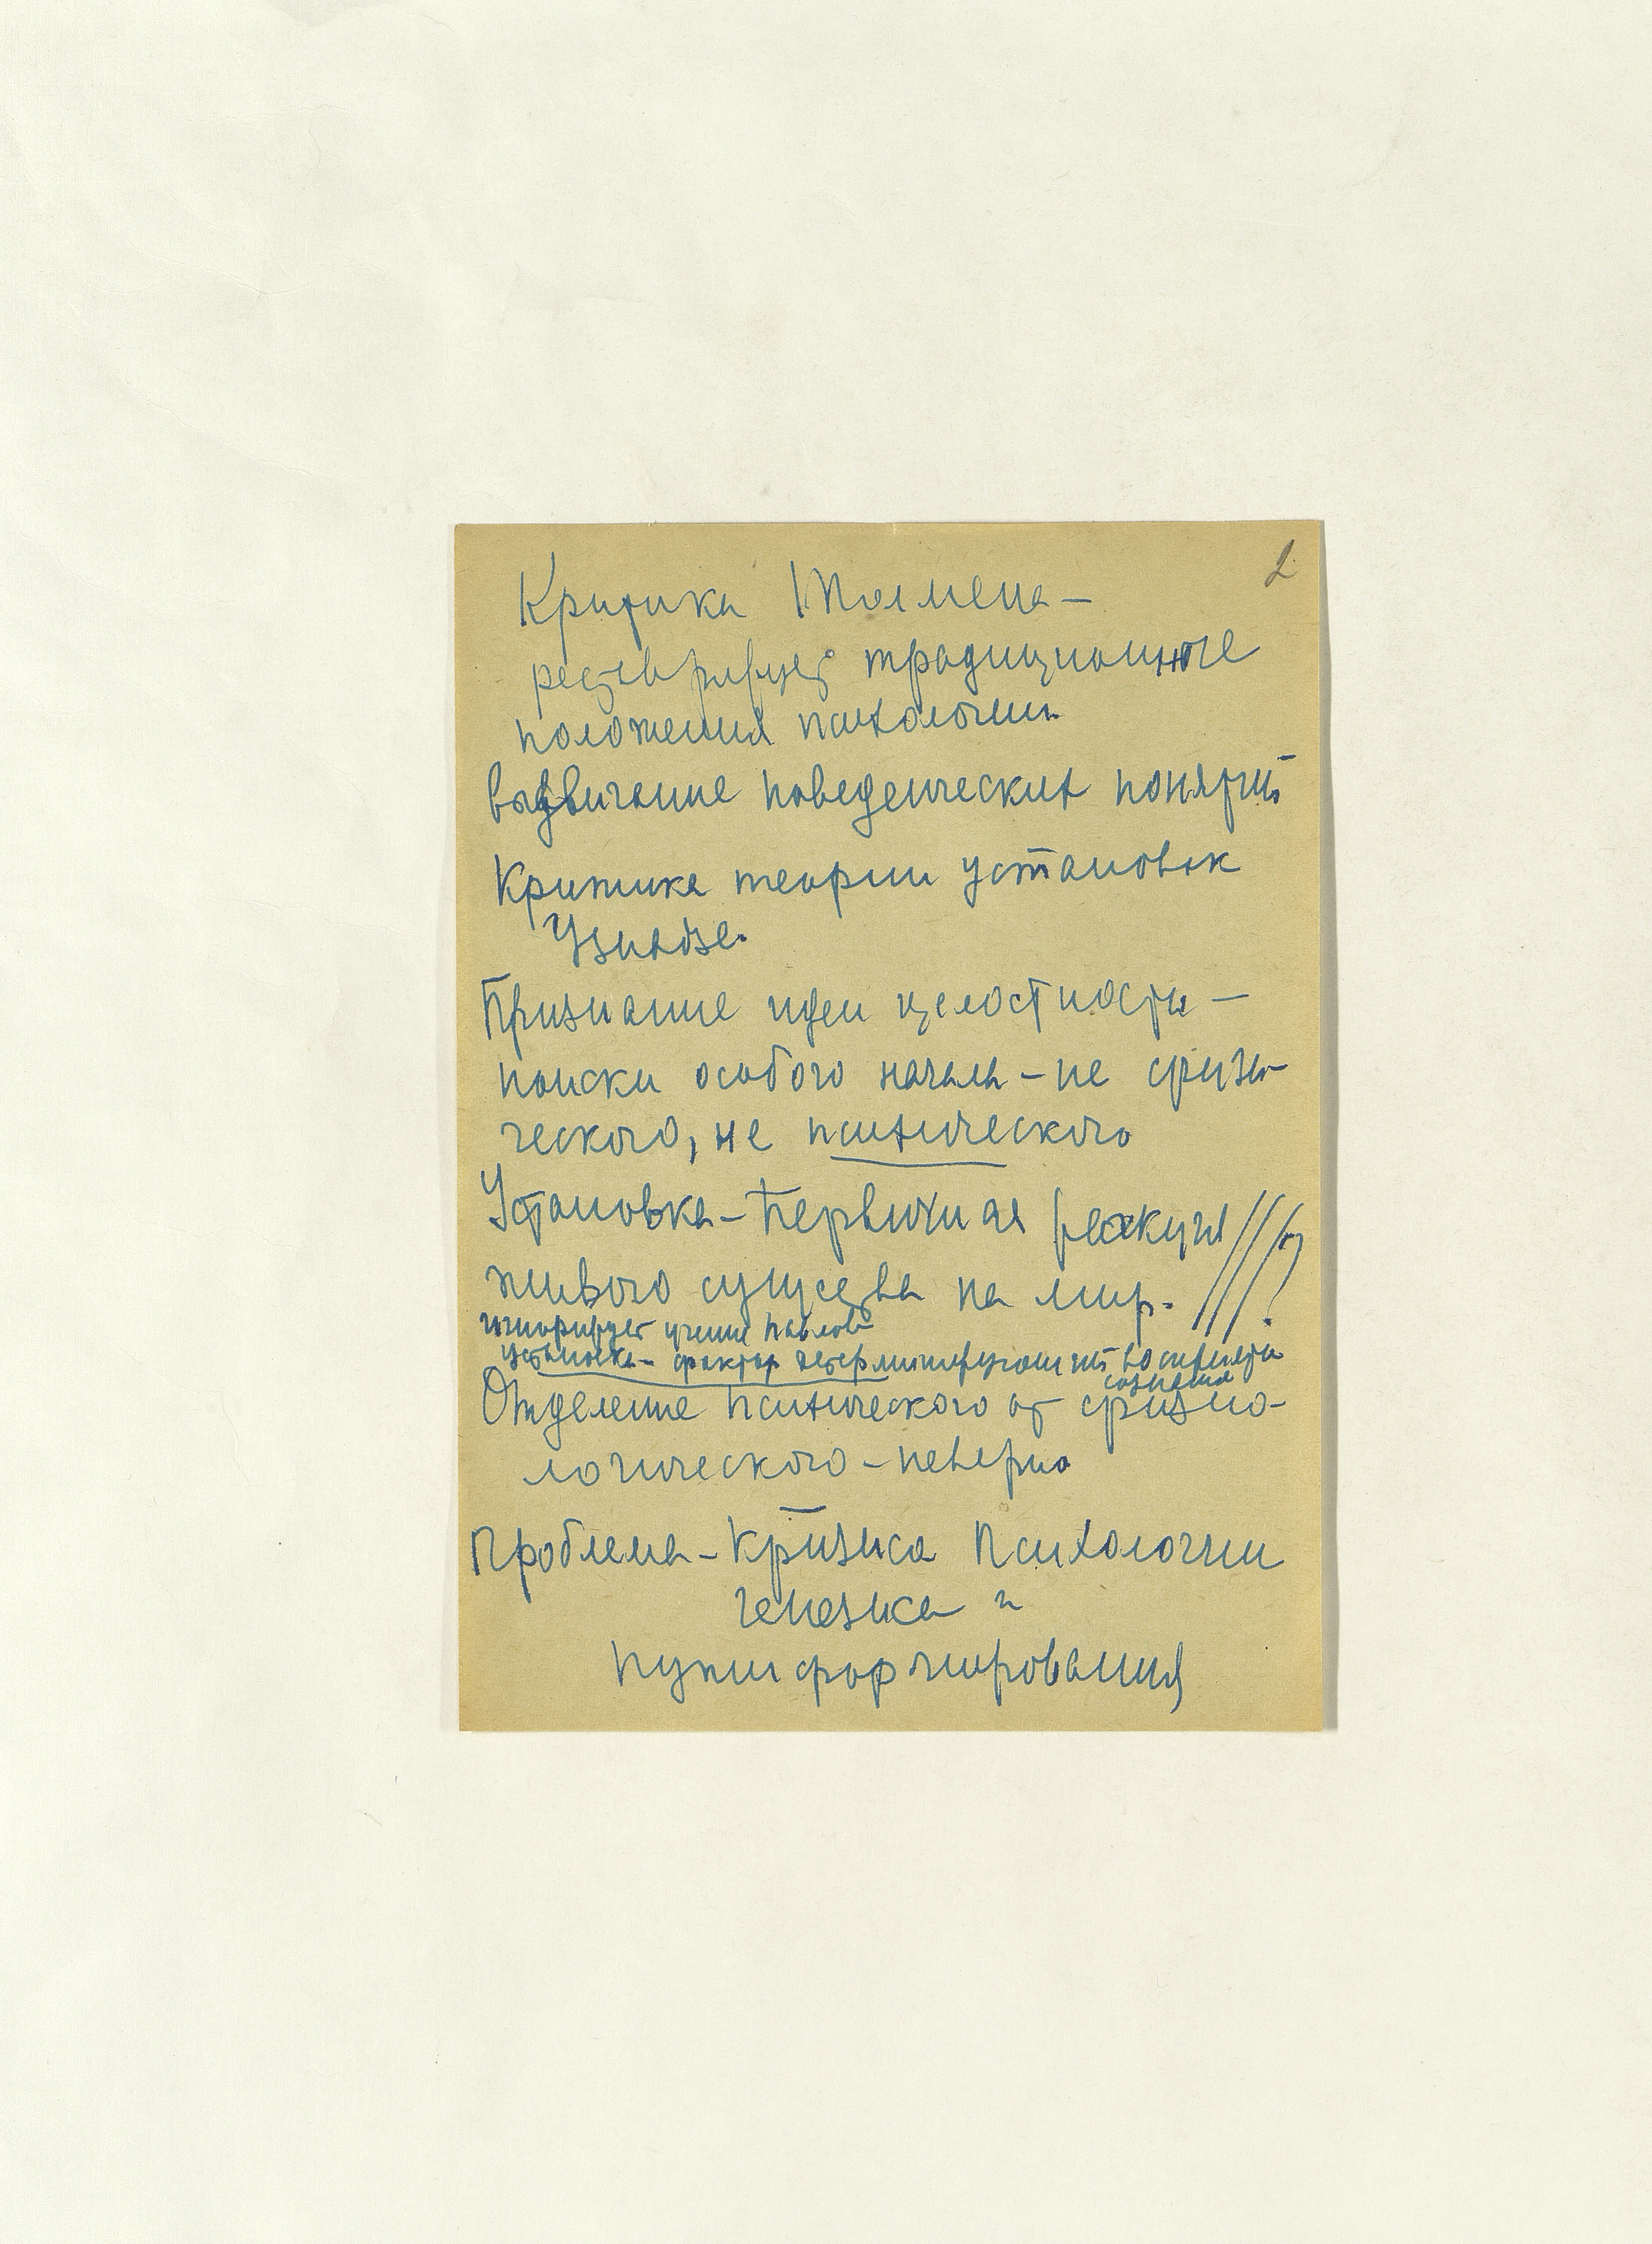 2
Критика Толмена –
реставрирует традиционное
положения психологии
выдвигание поведенческих понятий
Критика теории установок
Узнадзе.
Признание идеи целостности –
поиски особого начала – не физи-
ческого, не психического
Установка – Первичная реакция
живого существа на мир. ?
игнорирует учение Павлова
установка – фактор детерминирующий
сознания
Отделение психического от физио-
логического – неверно
Проблема – Кризиса Психологии
генезиса и
пути формирования